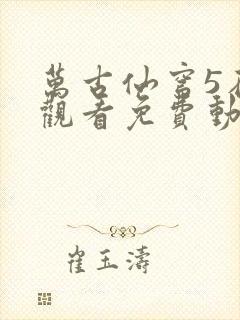 萬古仙穹5在
觀看免費動
崔玉濤